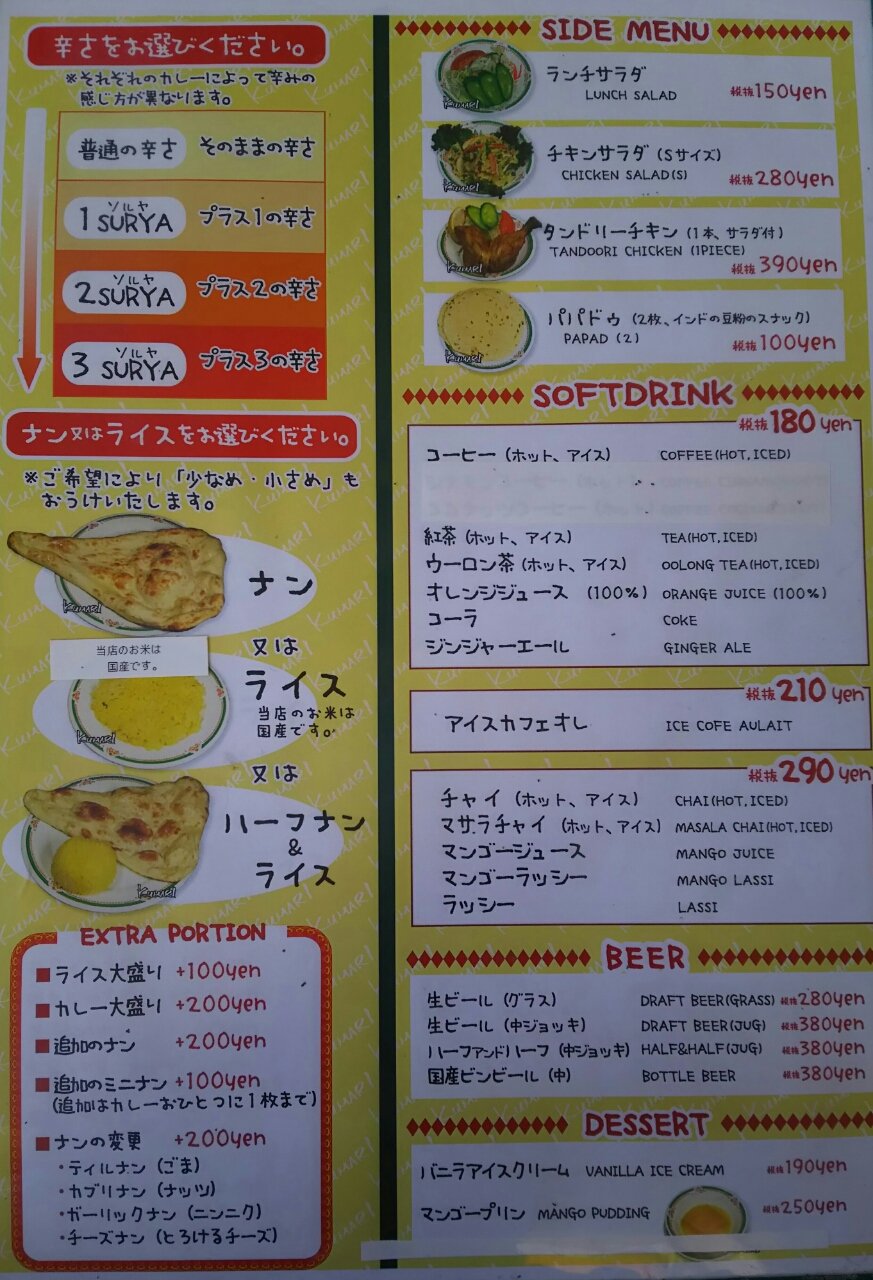 辛さをお選びください。
※それぞれのカレーによって辛みの
感じ方が異なります。
普通の辛さ そのままの辛さ
ソルヤ
1 SURYA プラス1の辛さ
ソルヤ
2 SURYA プラス2の辛さ
ソルヤ
3 SURYA プラス3の辛さ
ナン又はライスをお選びください。
※ご希望により「少なめ・小さめ」も
おうけいたします。
KUMARI
ナン
又は
当店のお米は
国産です。
ライス
当店のお米は
国産です。
KUMARI
又は
ハーフナン
&
ライス
KUMARI
EXTRA PORTION
■ライス大盛り +100yen
■カレー大盛り +200yen
■追加のナン +200yen
■追加のミニナン +100yen
(追加はカレーおひとつに1枚まで)
■ナンの変更 +200yen
・ティルナン (ごま)
・カブリナン (ナッツ)
・ガーリックナン (ニンニク)
・チーズナン (とろけるチーズ)
SIDE MENU
ランチサラダ
LUNCH SALAD 税抜150yen
KUMARI
チキンサラダ (Sサイズ)
CHICKEN SALAD(S) 税抜280yen
KUMARI
タンドリーチキン (1本、サラダ付)
TANDOORI CHICKEN (1PIECE)
税抜390yen
KUMARI
パパドゥ (2枚、インドの豆粉のスナック)
PAPAD (2) 税抜100yen
KUMARI
SOFTDRINK
税抜180yen
コーヒー (ホット、アイス) COFFEE(HOT, ICED)
紅茶 (ホット、アイス) TEA(HOT, ICED)
ウーロン茶 (ホット、アイス) OOLONG TEA(HOT, ICED)
オレンジジュース (100%) ORANGE JUICE (100%)
コーラ COKE
ジンジャーエール GINGER ALE
税抜210yen
アイスカフェオレ ICE COFE AULAIT
税抜290yen
チャイ (ホット、アイス) CHAI(HOT, ICED)
マサラチャイ (ホット、アイス) MASALA CHAI(HOT, ICED)
マンゴージュース MANGO JUICE
マンゴーラッシー MANGO LASSI
ラッシー LASSI
BEER
生ビール (グラス) DRAFT BEER(GRASS) 税抜280yen
生ビール (中ジョッキ) DRAFT BEER(JUG) 税抜380yen
ハーフアンドハーフ (中ジョッキ) HALF&HALF(JUG) 税抜380yen
国産ビンビール (中) BOTTLE BEER 税抜380yen
DESSERT
バニラアイスクリーム VANILLA ICE CREAM 税抜190yen
マンゴープリン MANGO PUDDING 税抜250yen